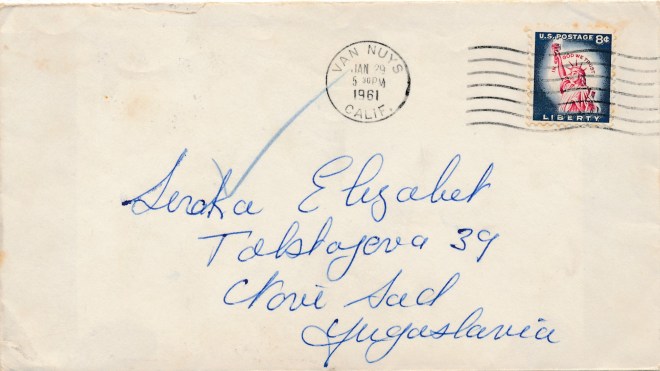 VAN NUYS
JAN 29
5 30PM
1961
CALIF.
U.S. POSTAGE 8¢
IN GOD WE TRUST
LIBERTY
Elizabet
Tolstojeva 39
Novi Sad
Yugoslavia